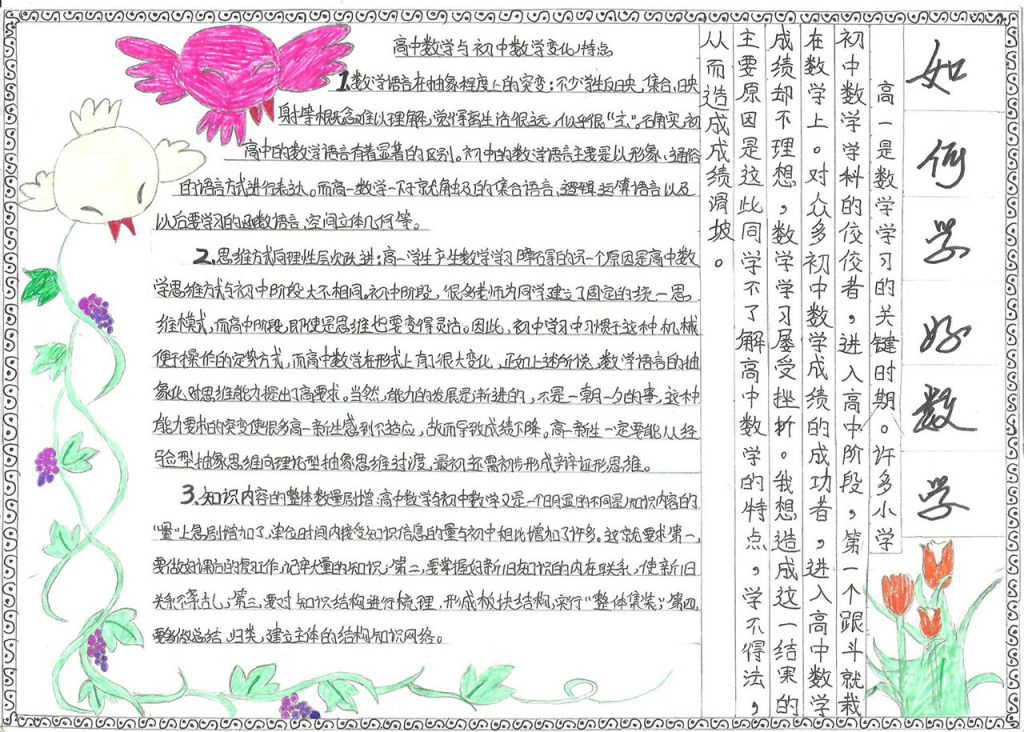 如何学好数学
高一是数学学习的关键时期。许多小学
初中数学学科的佼佼者，进入高中阶段，第一个跟斗就栽
在数学上。对众多初中数学成绩的成功者，进入高中数学
成绩却不理想，数学学习屡受挫折。我想造成这一结果的
主要原因是这此同学不了解高中数学的特点，学不得法，
从而造成成绩滑坡。
高中数学与初中数学变化特点
1.数学语言在抽象程度上的突变：不少学生反映，集合、映
射等概念难以理解，觉得离生活很远，似乎很“玄”。确实，初
高中的数学语言有着显著的区别。初中的数学语言主要是以形象、通俗
的语言方式进行表达。而高一数学一下子就触及的集合语言、逻辑运算语言以及
以后要学习的函数语言、空间立体几何等。
2.思维方式向理性层次跃进：高一学生产生数学学习障碍的另一个原因是高中数
学思维方式与初中阶段大不相同。初中阶段，很多老师为同学建立了固定的统一思
维模式，而高中阶段，即使是思维也要变得灵活。因此，初中学习中习惯于这种机械
便于操作的定势方式，而高中数学在形式上有了很大变化，正如上述所说，数学语言的抽
象化对思维能力提出了高要求。当然，能力的发展是渐进的，不是一朝一夕的事，这种
能力要求的突变使很多高一新生感到不适应，故而导致成绩下降。高一新生一定要能从经
验型抽象思维向理论型抽象思维过渡，最初还需初步形成辩证形思维。
3.知识内容的整体数量剧增：高中数学与初中数学又是一个明显的不同是知识内容的
“量”上急剧增加了，单位时间内接受知识信息的量与初中相比增加了许多。这就要求第一，
要做好课后的复习工作，记牢大量的知识；第二，要掌握好新旧知识的内在联系，使新旧
关系不紊乱；第三，要对知识结构进行梳理，形成板块结构，实行“整体集装”；第四，
要多做总结、归类，建立主体的结构知识网络。